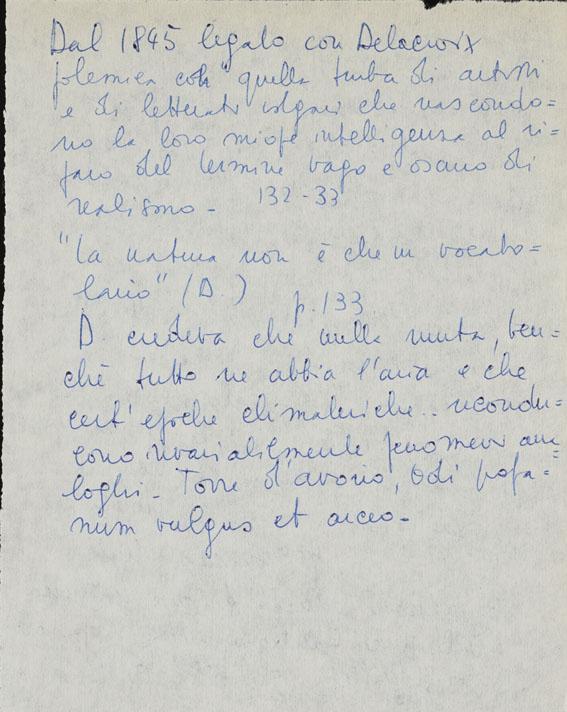 Dal 1845 legato con Delacroix
polemica con "quella turba di artisti
e di letterati volgari che nascondo=
no la loro miope intelligenza al ri=
paro del termine vago e osano di
realismo - 132-33
"La natura non è che un vocabo=
lario" (D.) p. 133
D. credeva che nulla muta, ben=
chè tutto ne abbia l'aria e che
cert' epoche climateriche.. ricondu=
cono invariabilmente fenomeni ana=
loghi - Torre d'avorio, Odi profa=
num vulgus et arceo -